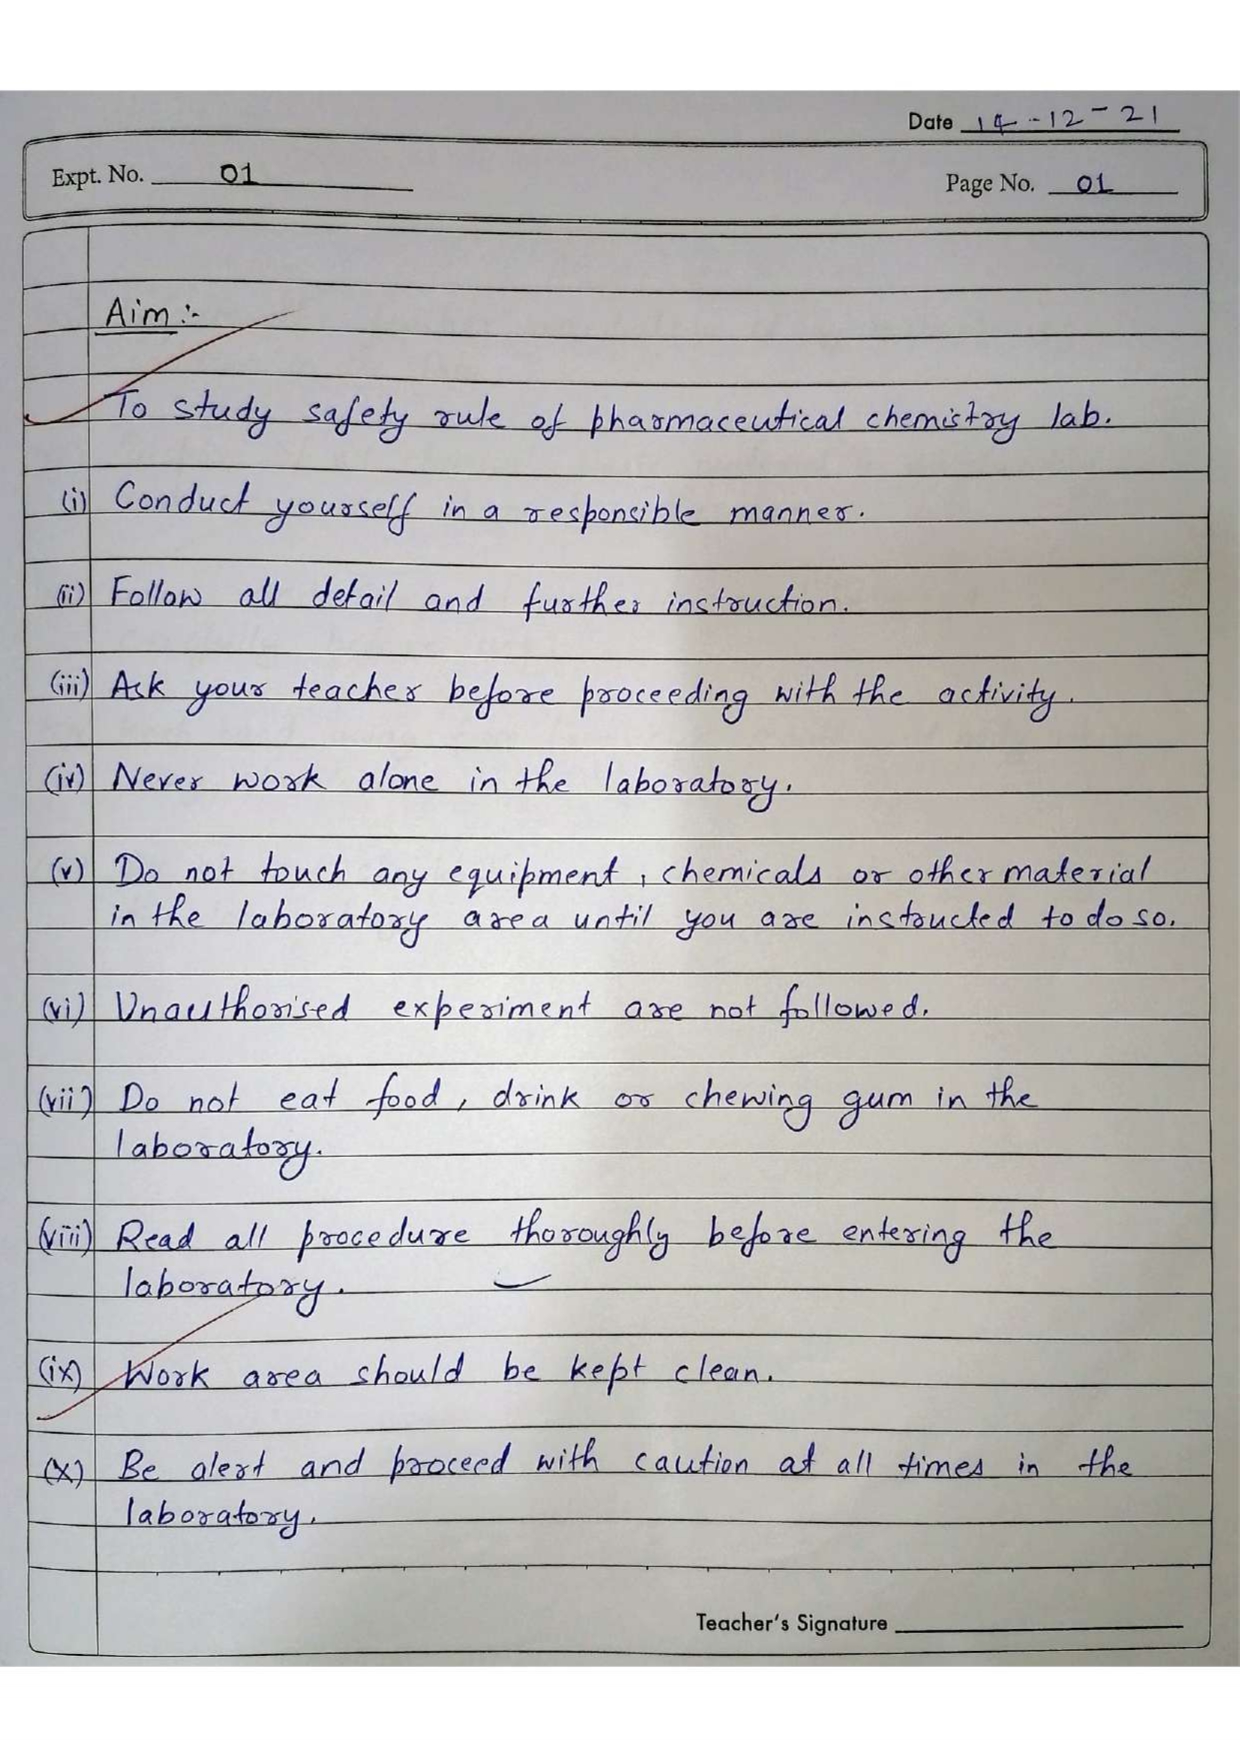 Date 14-12-21
Expt. No. 01
Page No. 01
Aim :-
To study safety rule of pharmaceutical chemistry lab.
(i) Conduct yourself in a responsible manner.
(ii) Follow all detail and further instruction.
(iii) Ask your teacher before proceeding with the activity.
(iv) Never work alone in the laboratory.
(v) Do not touch any equipment, chemicals or other material
in the laboratory area until you are instoucted to do so.
(vi) Unauthorised experiment are not followed.
(vii) Do not eat food, drink or chewing gum in the
laboratory.
(viii) Read all procedure thoroughly before entering the
laboratory.
(ix) Work area should be kept clean.
(x) Be alert and proceed with caution at all times in the
laboratory.
Teacher's Signature